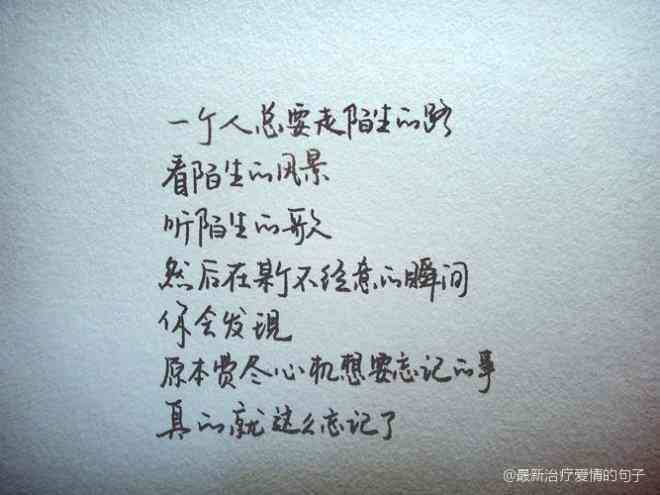 一个人总要走陌生的路
看陌生的风景
听陌生的歌
然后在某个不经意的瞬间
你会发现
原本费尽心机想要忘记的事
真的就这么忘记了
@最新治疗爱情的句子